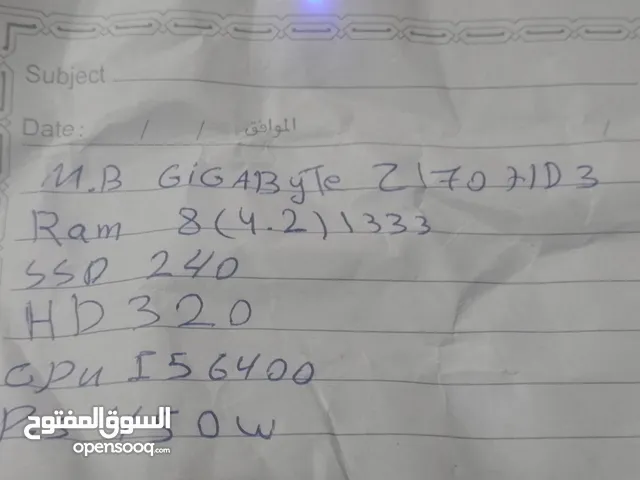 Subject
Date: / / الموافق /
M.B GiGAByTe Z170 HD3
Ram 8(4.2) 1333
SSD 240
HD 320
CPU I5 6400
50W
السوق المفتوح
opensooq.com